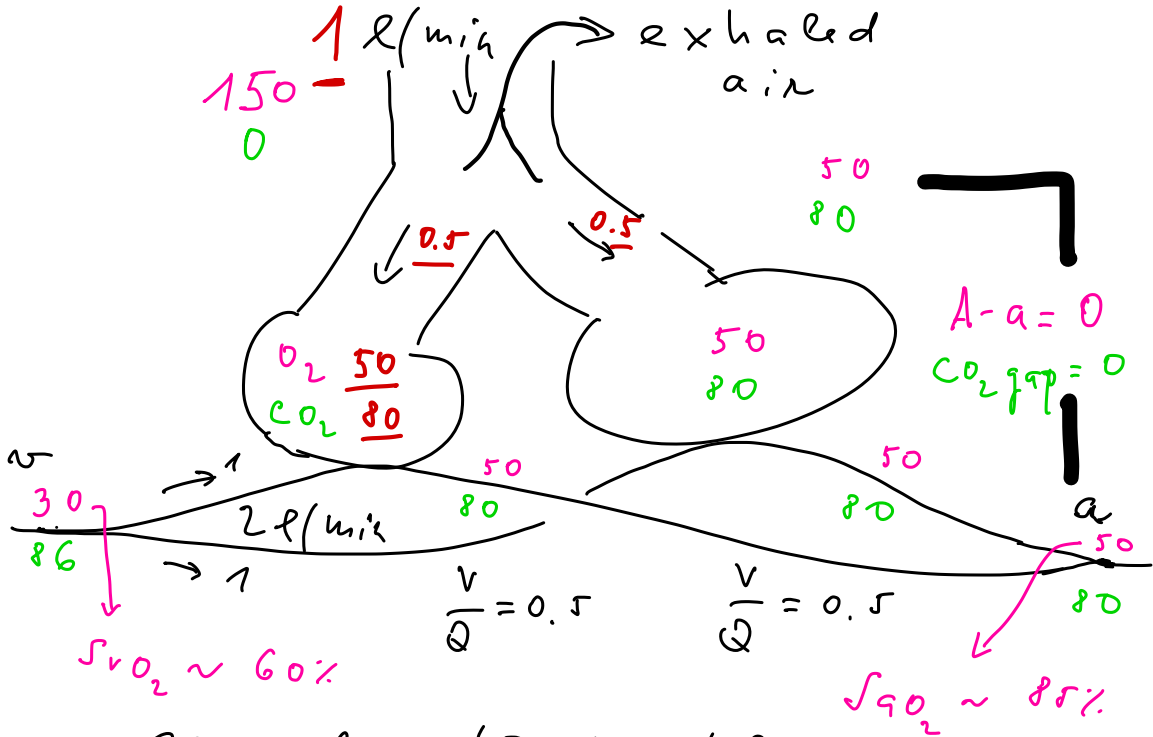 1 l/min exhaled
air
150
0
50
80
0.5 0.5
A-a = 0
CO₂ gap = 0
O₂ 50
CO₂ 80
50
80
v
1
30
86
2 l/min
1
50
80
50
80
a
50
80
V/Q = 0.5
V/Q = 0.5
SvO₂ ~ 60%
SaO₂ ~ 85%